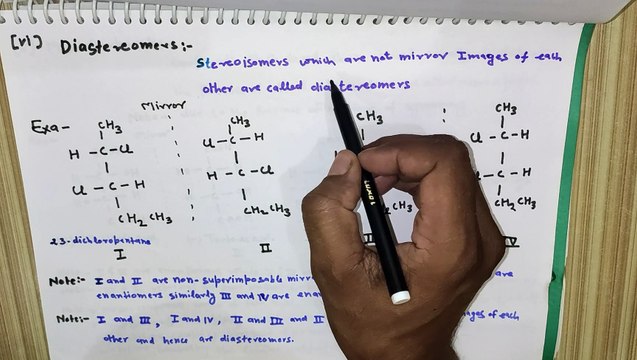 [vi) Diastereomers:-
Stereoisomers which are not mirror Images of each
other are called diastereomers
Mirror
Exa- CH3 CH3 CH3 CH3
H -C- Cl Cl -C- H Cl -C- H
Cl -C- H H -C- Cl H -C- Cl
CH2CH3 CH2CH3 CH3 CH2CH3
2,3-dichloropentane
I II IV
Note:- I and II are non-superimposable are
enantiomers similarly III and IV are
Note:- I and III, I and IV, II and III and of each
other and hence are diastereomers.